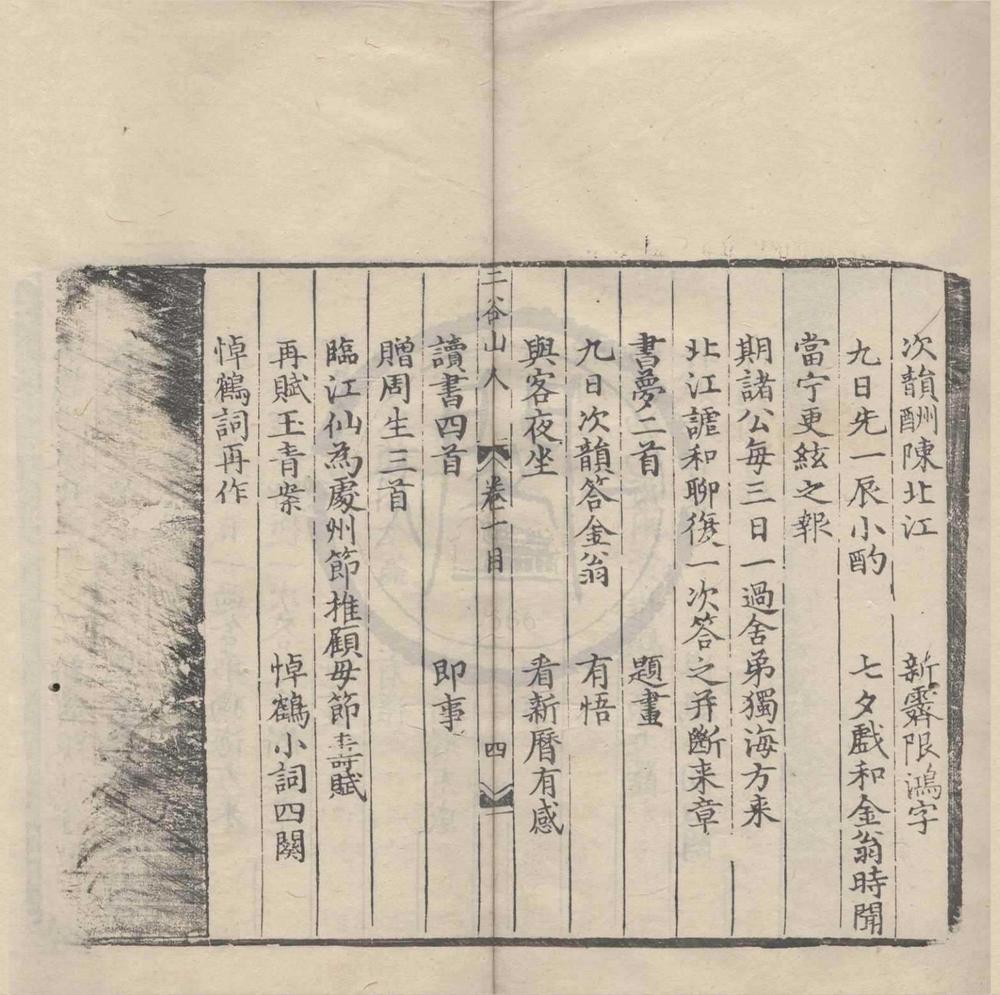 次韻酬陳北江　新霽限鴻字
九日先一辰小酌　七夕戲和金翁時聞
當宁更絃之報
期諸公每三日一過舍弟獨海方来
北江謔和聊復一次答之并斷来章
書夢二首　題畫
九日次韻答金翁　有悟
與客夜坐　看新曆有感
二谷山人　卷一目　四
讀書四首　即事
贈周生三首
臨江仙為處州節推顧母節壽賦
再賦玉青案　悼鶴小詞四闋
悼鶴詞再作